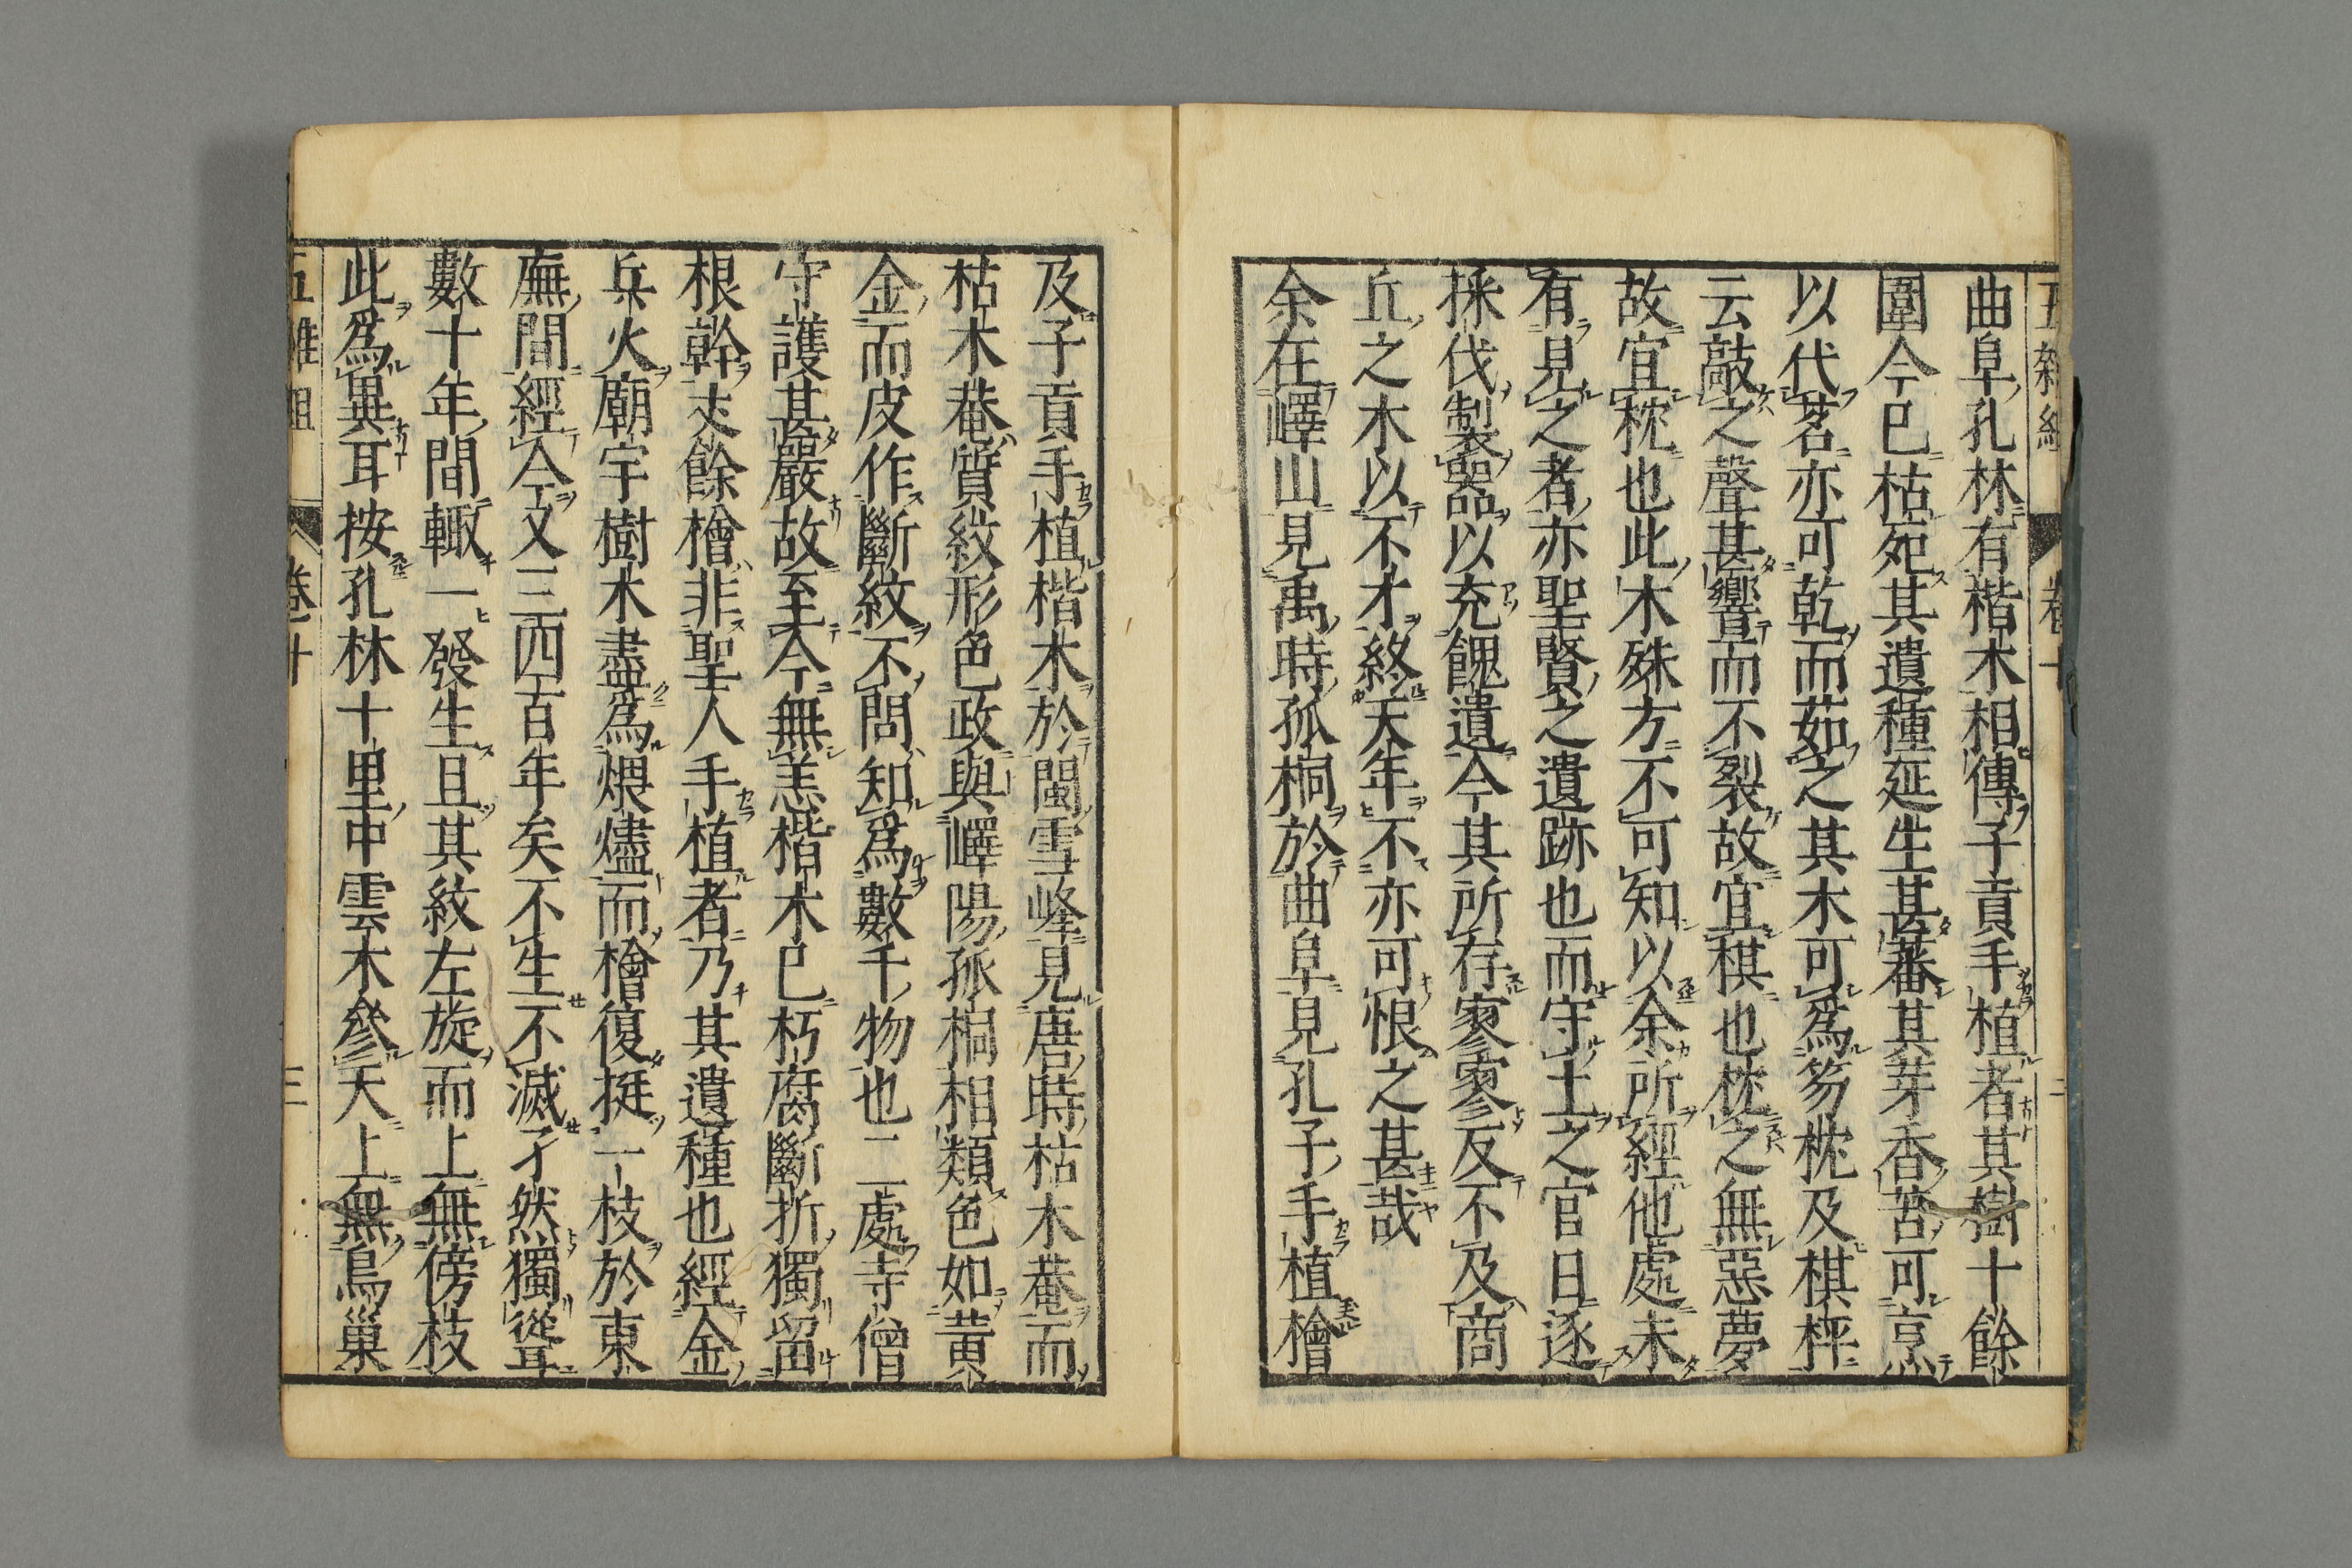 曲阜孔林有楷木相傳子貢手植者其樹十餘
圍今已枯死其遺種延生甚蕃其芽香苦可烹
以代茗亦可乾而茹之其木可爲笏枕及棋枰
云敲之聲甚響而不裂故宜棋也枕之無惡夢
故宜枕也此木殊方不可知以余所經他處未
有見之者亦聖賢之遺跡也而守土之官日逐
採伐製器以充餽遺今其所存寥寥反不及商
丘之木以不才終天年不亦可恨之甚哉
余在嶧山見禹時孤桐於曲阜見孔子手植檜
及子貢手植楷木於閩雪峰見唐時枯木菴而
枯木菴質紋形色政與嶧陽孤桐相類色如黃
金而皮作斷紋不問知爲數千物也二處寺僧
守護甚嚴故至今無恙楷木已朽腐斷折獨留
根幹丈餘檜非聖人手植者乃其遺種也經金
兵火廟宇樹木盡爲煨燼而檜復挺一枝於東
廡間經今又三四百年矣不生不滅孑然獨聳
數十年間輒一發生且其紋左旋而上無傍枝
此爲異耳按孔林十里中雲木參天上無鳥巢
五雜組 卷十 三